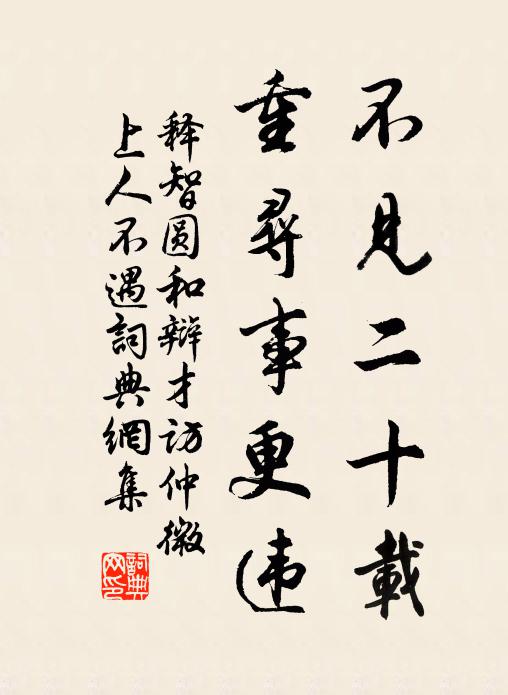 不見二十載
重尋事更违
释智圆和辩才访仲微
上人不遇詞典網集
詞典网印